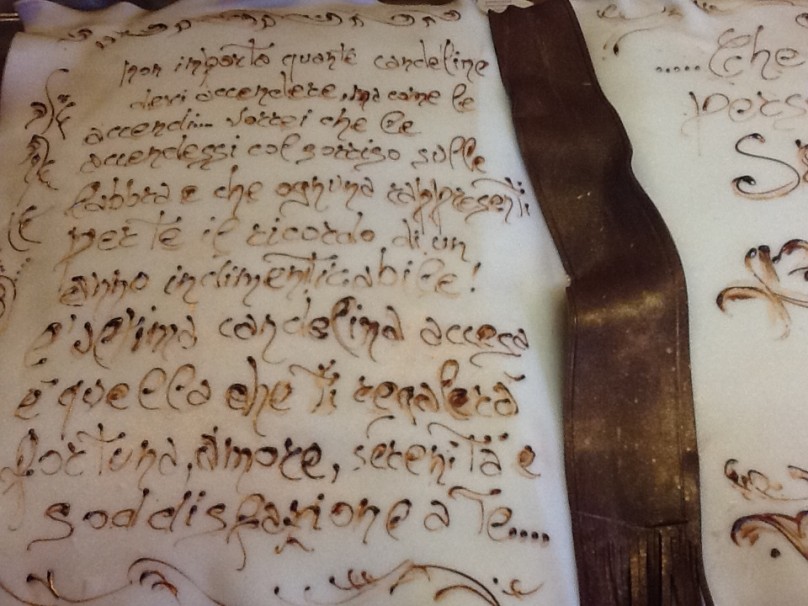 non importo quante candeline
devi accendere, ma come le
accendi... vorrei che le
accendessi col sorriso sulle
labbra e che ognuna rappresenti
per te il ricordo di un
anno indimenticabile!
candelina accesa
è quella che ti regalerà
fortuna, amore, serenità e
soddisfazione a te....
.....Che
pers